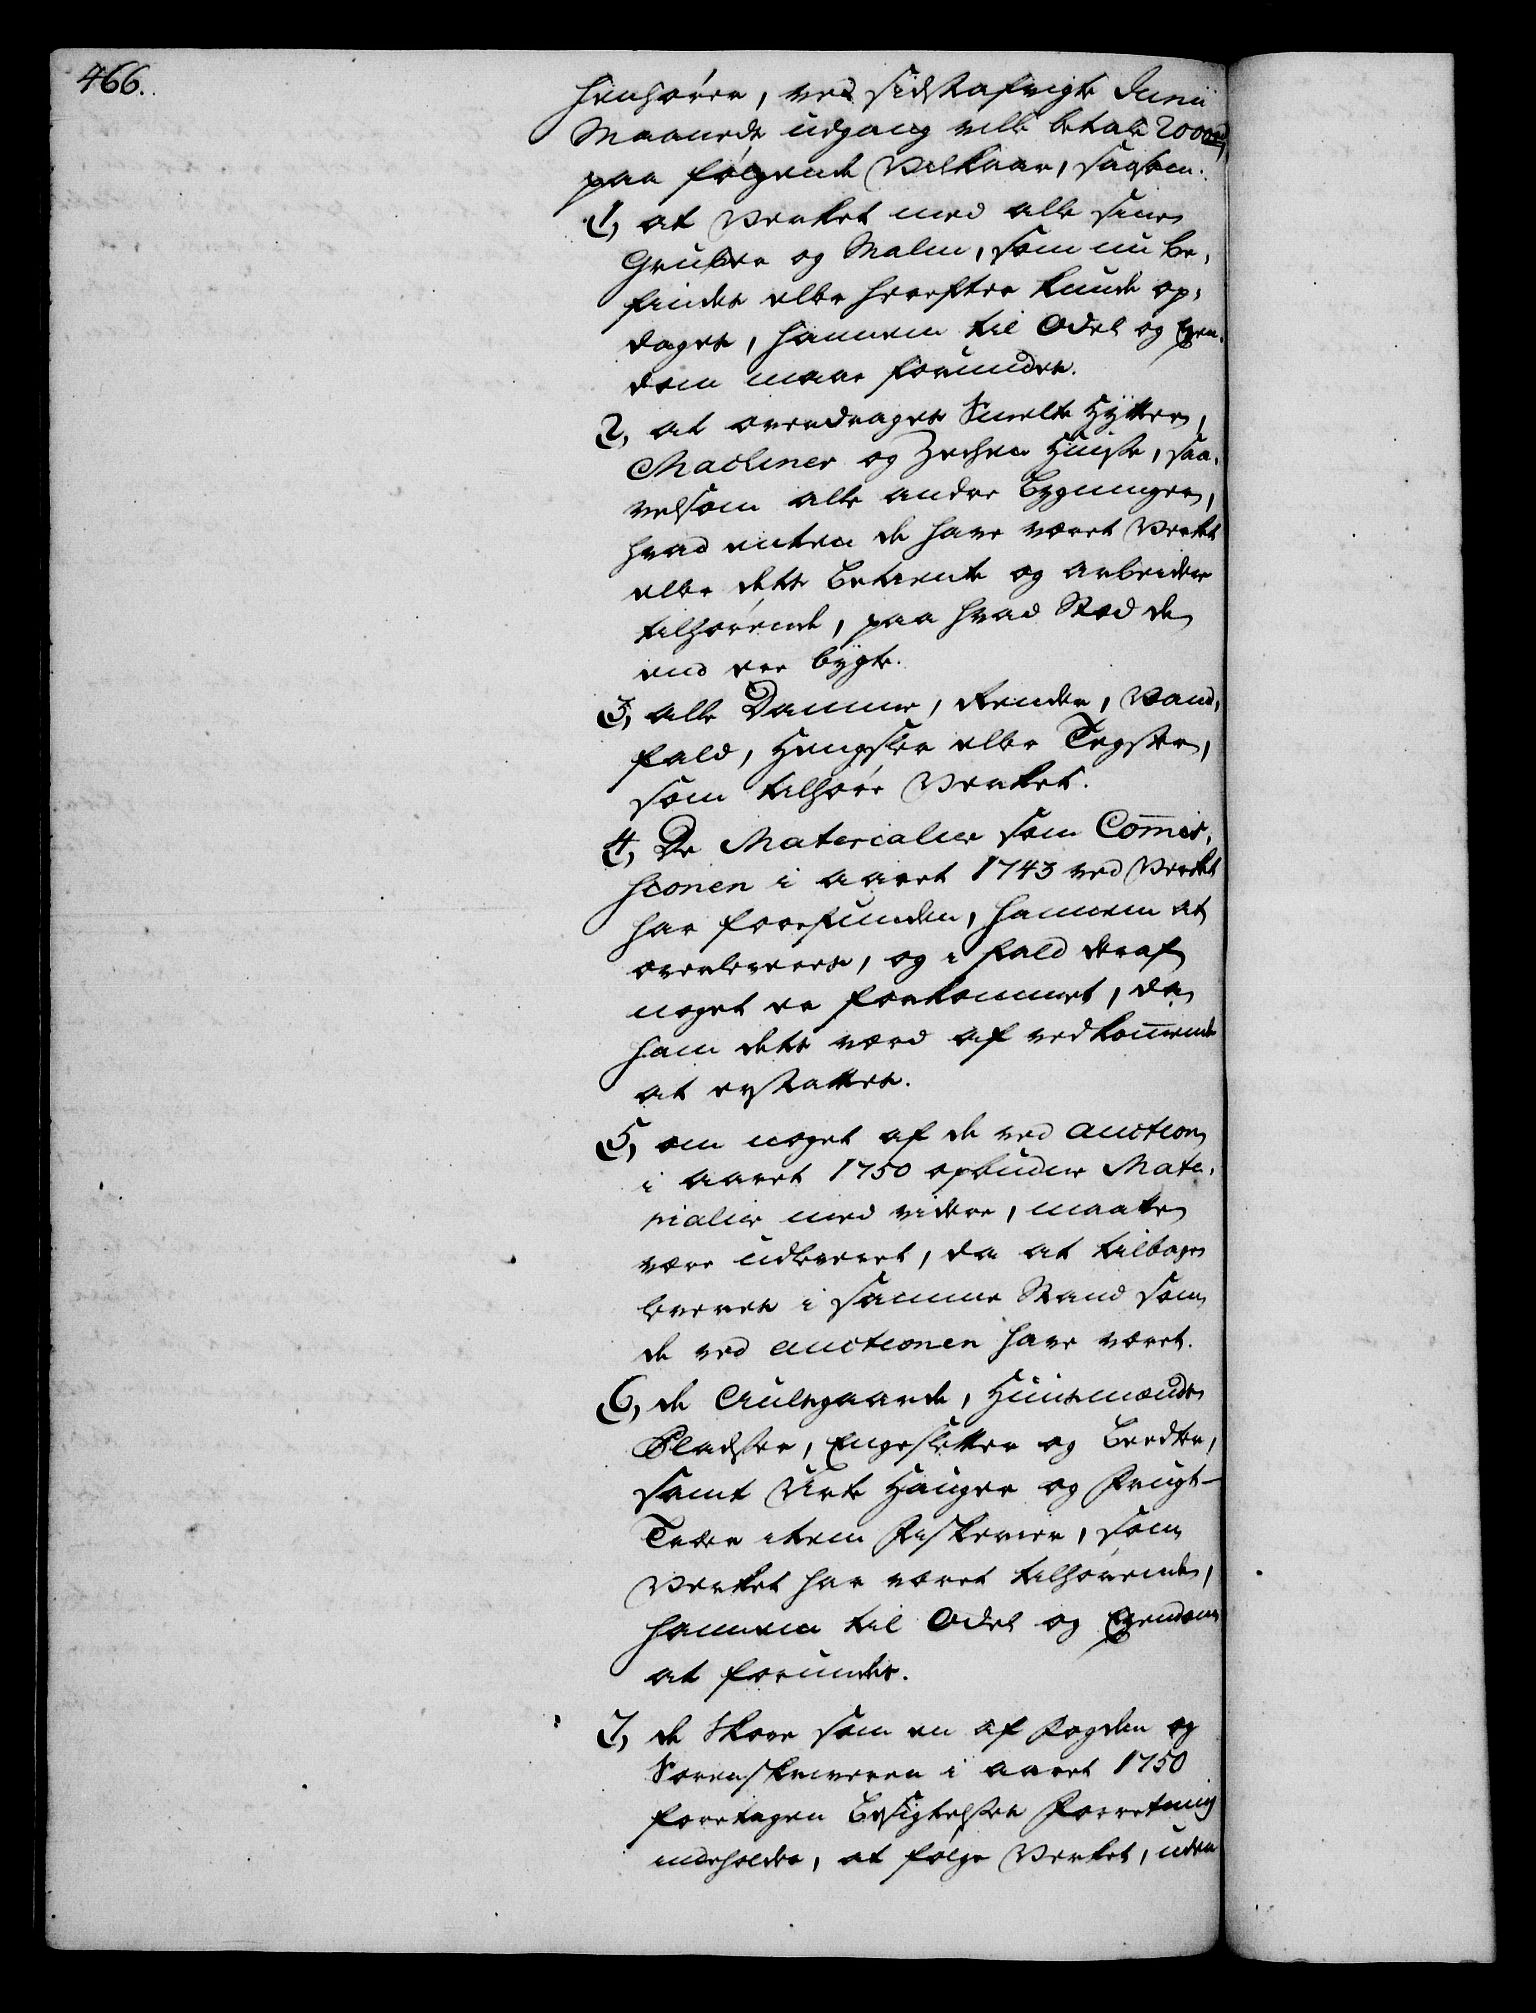 466.
henhører, ved sidstafvigte Junii
Maaneds udgang ville betale 2000 rd,
paa følgende Vilkaar, saasom.
1, at Verket med alle sine
Gruber og Malm, som nu be,
findes eller herefter kunde op,
dages, hannem til Odel og Ejen,
dom maae forundes.
2, at overdrages Smelte Hytter,
Machiner og Zechen Huuse, saa,
velsom alle andre Bygninger,
hvad enten de have været Verket
eller dets Betiente og arbeidere
tilhørende, paa hvad Stæd de
end ere bygte.
3, alle Damme, Render, Vand,
fald, Hengsler eller Tegster,
som tilhøre Verket.
4, De Materialier som Commis,
sionen i aaret 1743 ved Verket
har forefunden, hannem at
overleveres, og i fald deraf
noget er forkommet, da
ham dets værd af vedkommende
at erstattes.
5, om noget af de ved auction
i aaret 1750 opbudne Mate,
rialier med videre, maatte
være udleveret, da at tilbage
leveres i samme Stand som
de ved auctionen have været.
6, de Aulsgaarde, Huusmænds
Pladser, Engesletter og Beedter,
samt Urte Hauger og Frugt-
Træer item Fiskerier, som
Verket har været tilhørende,
hannem til Odel og Ejendom
at forundes.
7, de Skove som en af Fogden og
Sorenskriveren i aaret 1750
foretagen Besigtelses Forretning
indeholder, at følge Verket, uden